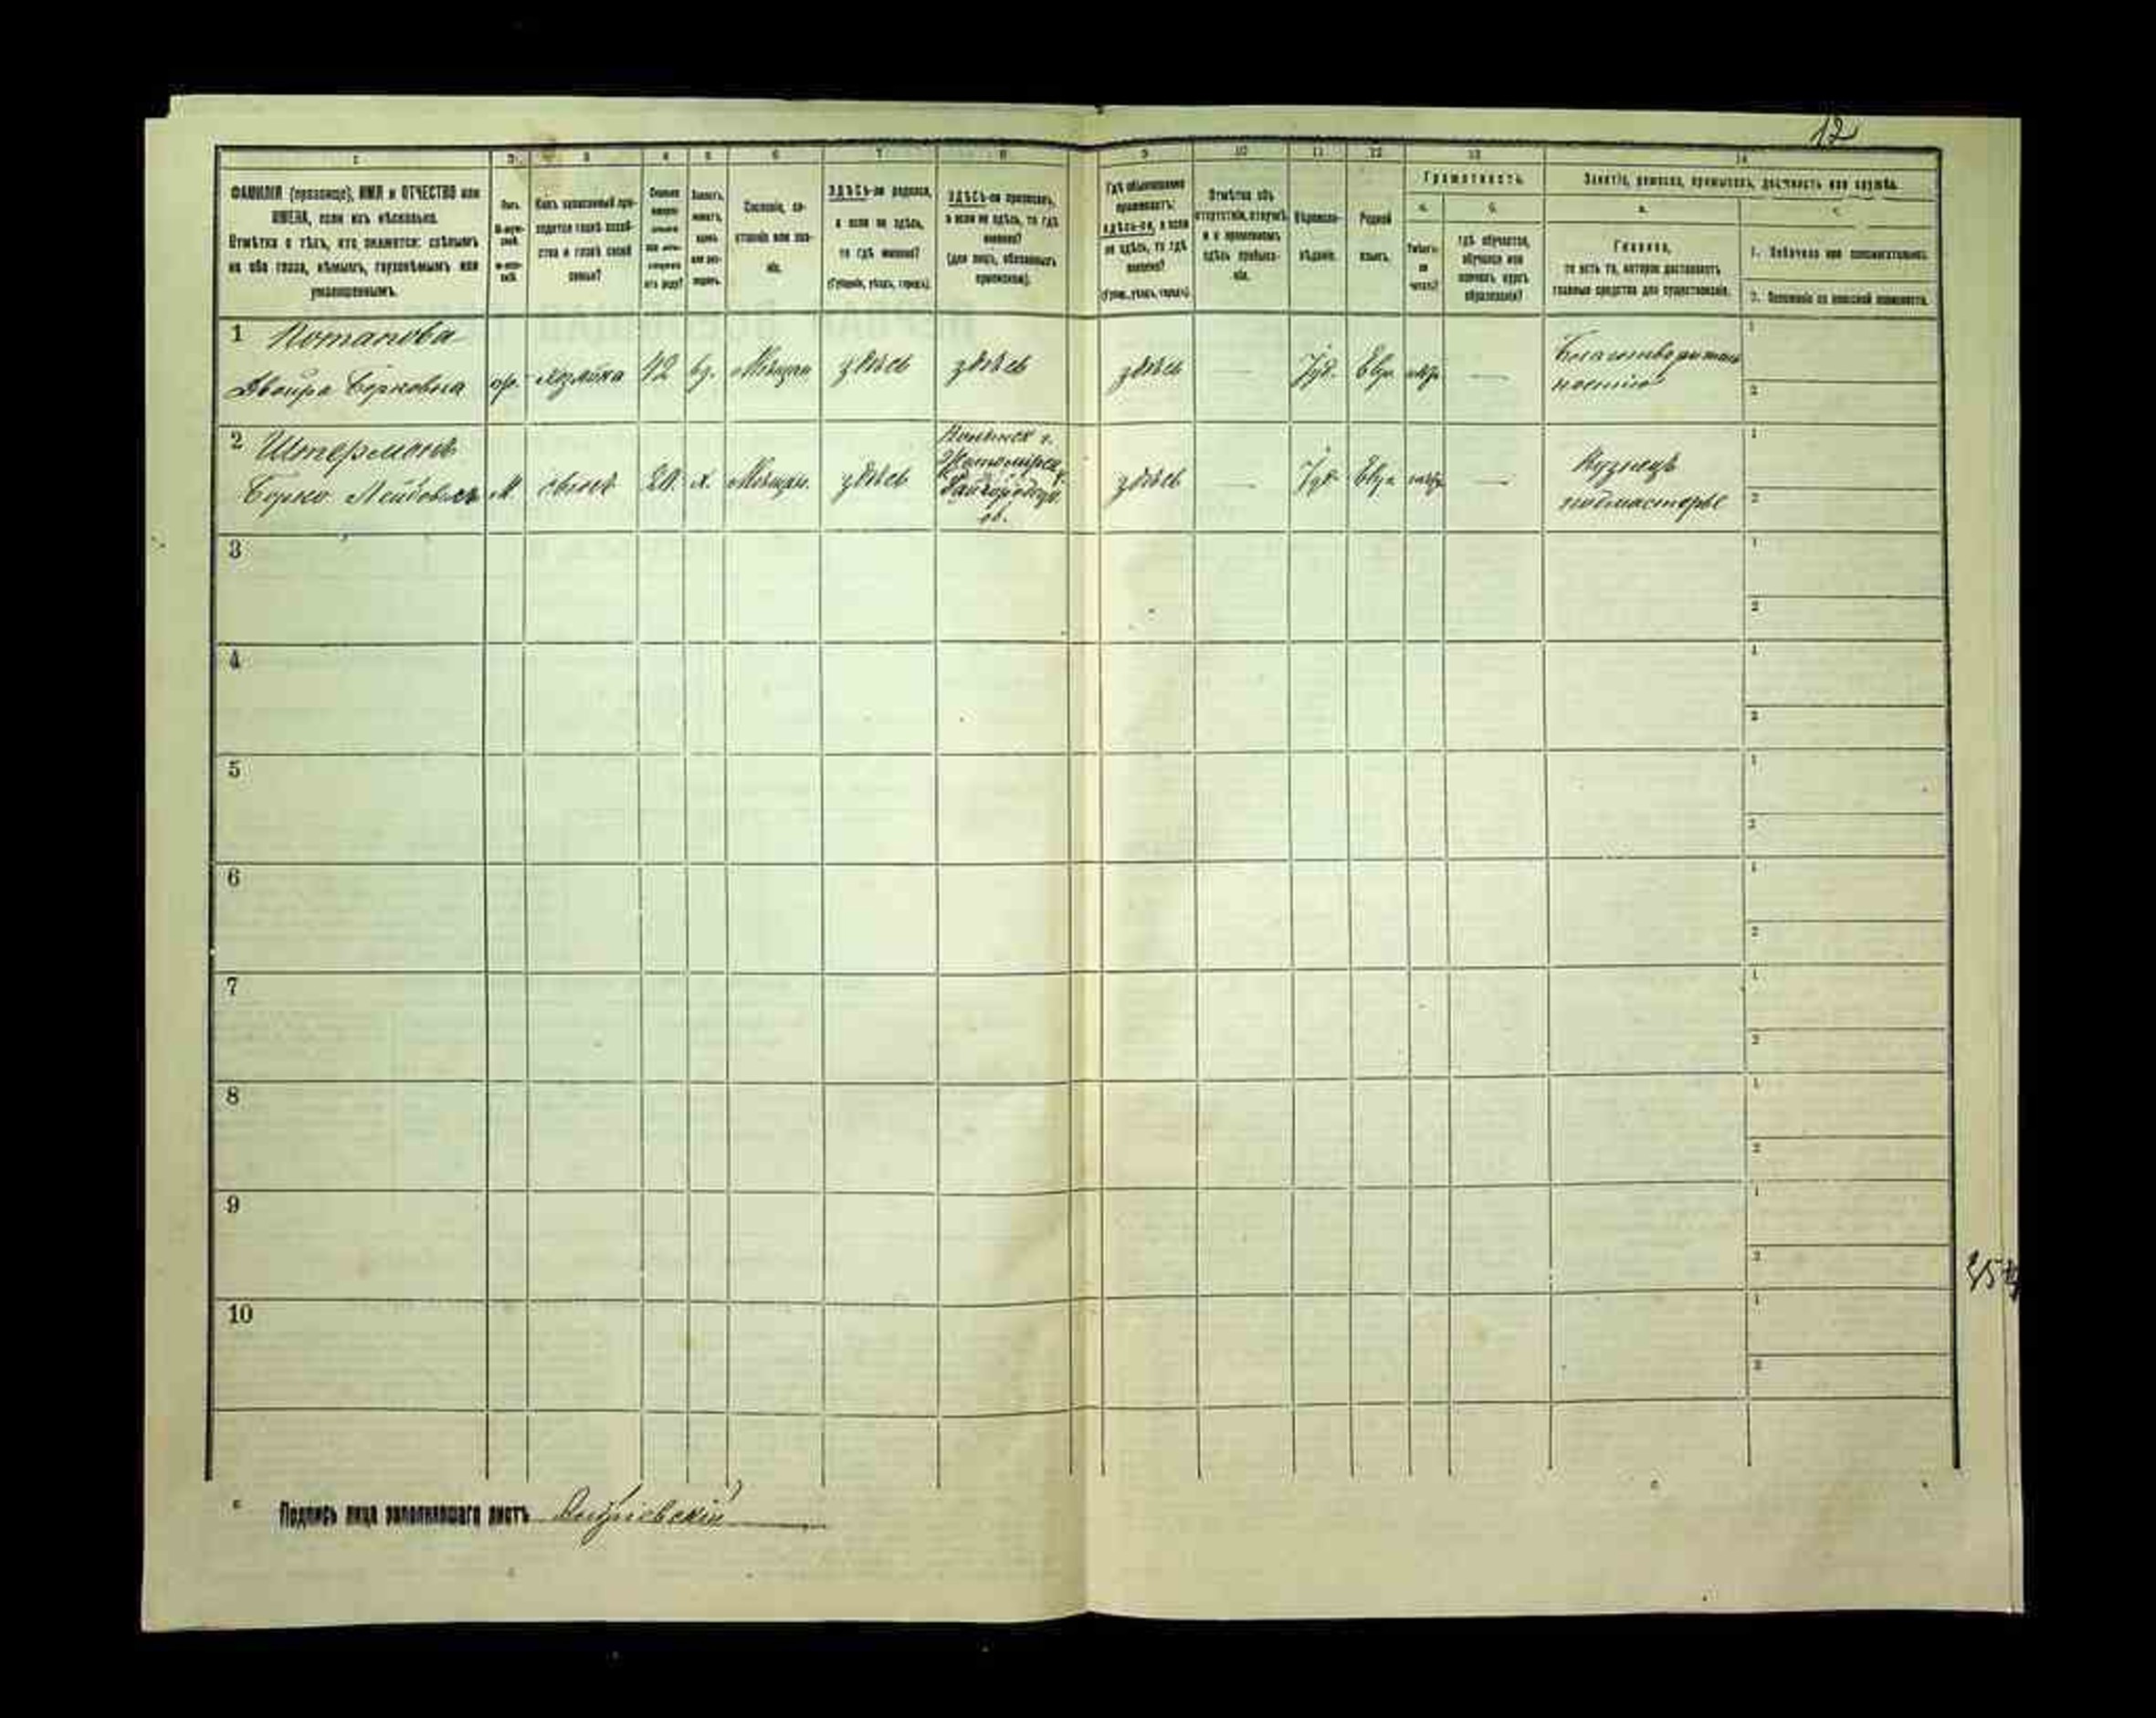 12
1 2 3 4 5 6 7 8 9 10 11 12 13 14
ФАМИЛІЯ (прозвище), ИМЯ и ОТЧЕСТВО или
ИМЕНА, если ихъ нѣсколько.
Отмѣтка о тѣхъ, кто окажется: слѣпымъ
на оба глаза, нѣмымъ, глухонѣмымъ или
умалишеннымъ.
Полъ.
Какъ записанный при-
ходится главѣ хозяй-
ства и главѣ своей
семьи?
Сословіе, со-
стояніе или зва-
ніе.
ЗДѢСЬ-ли родился,
а если не здѣсь,
то гдѣ именно?
(Губернія, уѣздъ, городъ).
ЗДѢСЬ-ли приписанъ,
а если не здѣсь, то гдѣ
именно?
(для лицъ, обязанныхъ
припиской).
Гдѣ обыкновенно
проживаетъ:
здѣсь-ли, а если
не здѣсь, то гдѣ
именно?
(Губер., уѣздъ, городъ)
Отмѣтка объ
отсутствіи, отлучкѣ
и о временномъ
здѣсь пребыва-
ніи.
Вѣроиспо-
вѣданіе.
Родной
языкъ.
Грамотность.
а.
Умѣетъ-
ли
читать?
б.
гдѣ обучается,
обучался или
кончилъ курсъ
образованія?
Занятіе, ремесло, промыселъ, должность или служба.
а.
Главное,
то есть то, которое доставляетъ
главныя средства для существованія.
1. Побочное или вспомогательное.
2. Положеніе по воинской повинности.
1 Потапова
Двойра Берковна
хозяйка 42 вд. Мѣщан. здѣсь здѣсь здѣсь — Іуд. Евр. —
Благотворитель
ностію
1
2
2 Штерманъ
Берко Лейбовичъ
М 20 х. Мѣщан. здѣсь
Волынск г.
Житомірск у.
здѣсь — Іуд. Евр. —
Кузнецъ
подмастерье
1
2
3 1
2
4 1
2
5 1
2
6 1
2
7 1
2
8 1
2
9 1
2
10 1
2
Подпись лица заполнившаго листъ